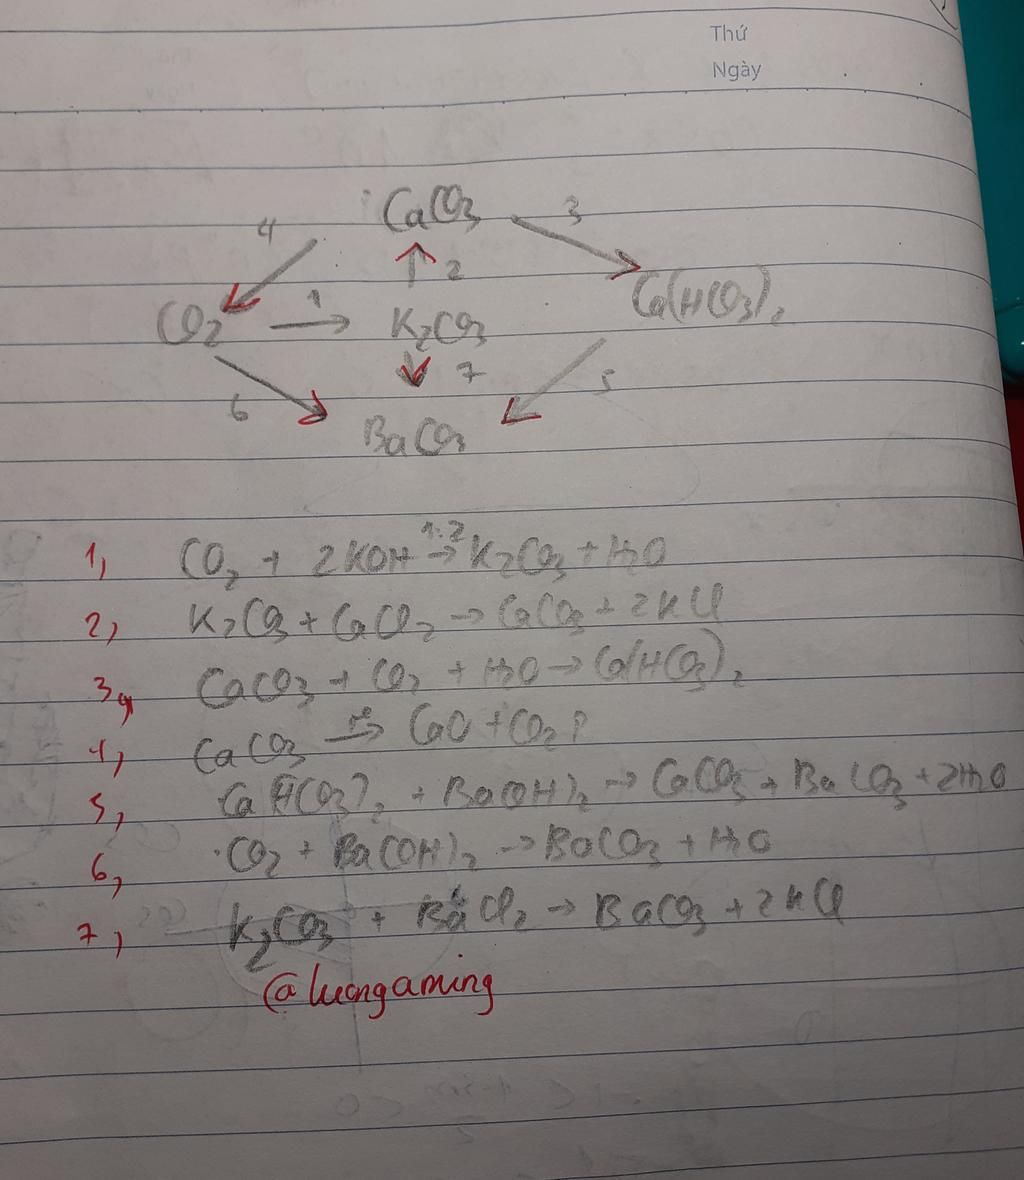 Thứ
Ngày
CaCO3
4
3
2
Ca(HCO3)2
CO2
1
K2CO3
7
5
6
BaCO3
1, CO2 + 2KOH 1:2 → K2CO3 + H2O
2, K2CO3 + CaCl2 → CaCO3 + 2KCl
3, CaCO3 + CO2 + H2O → Ca(HCO3)2
4, CaCO3 t° → CaO + CO2↑
5, Ca(HCO3)2 + Ba(OH)2 → CaCO3 + BaCO3 + 2H2O
6, CO2 + Ba(OH)2 → BaCO3 + H2O
7, K2CO3 + BaCl2 → BaCO3 + 2KCl
@luongaming